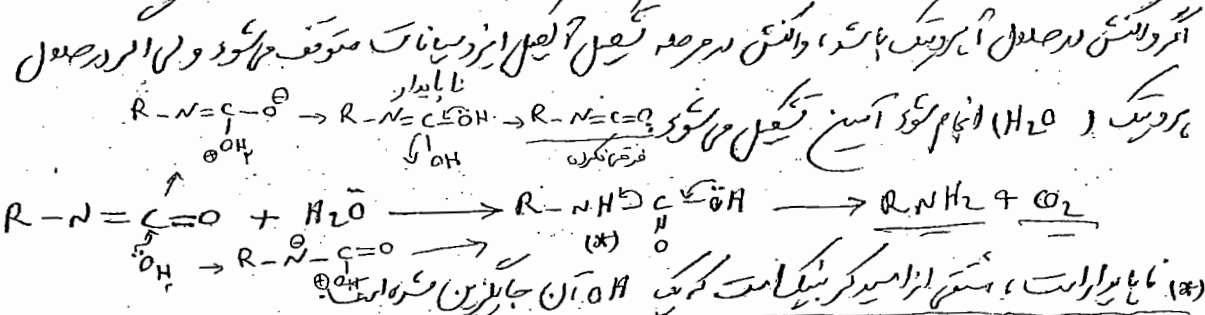 اگر واکنش در حلال آپروتیک باشد، واکنش در مرحله تشکیل آلکیل ایزوسیانات متوقف می‌شود ولی اگر در حلال
ناپایدار
R-N=C-O⊖ → R-N=C-ÖH → R-N=C=O
پروتیک (H2O) انجام شود آمین تشکیل می‌شود.
⊕OH2 OH فرقی نکرده
R-N=C=O + H2O → R-NH-C-ÖH → RNH2 + CO2
(*) O
ÖH2 → R-N⊖-C=O →
⊕OH2
(*) ناپایدار است، مشتقی از اسید کربنیک است که یک OH آن جایگزین شده است.